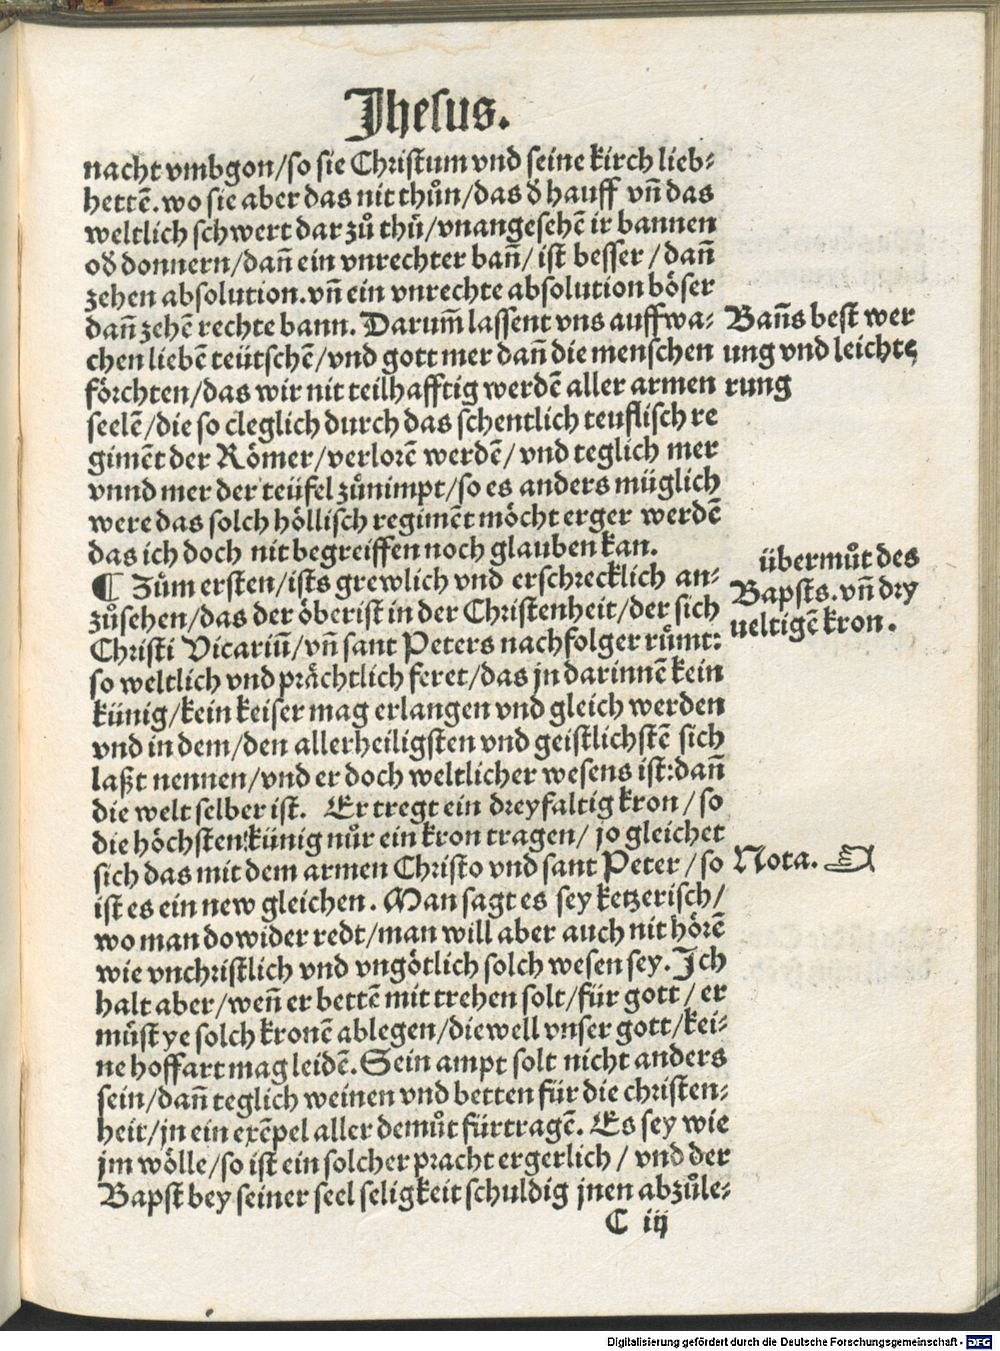 Jhesus.
nacht vmbgon/so sie Christum vnd seine kirch lieb⸗
hettē.wo sie aber das nit thůn/das ð hauff vñ das
weltlich schwert dar zů thů/vnangesehē ir bannen
oð donnern/dañ ein vnrechter bañ/ist besser/dañ
zehen absolution.vñ ein vnrechte absolution böser
dañ zehē rechte bann. Darum̄ lassent vns auffwa⸗
chen liebē teütschē/vnd gott mer dañ die menschen
förchten/das wir nit teilhafftig werdē aller armen
seelē/die so cleglich durch das schentlich teuflisch re
gimēt der Römer/verlorē werdē/vnd teglich mer
vnnd mer der teüfel zůnimpt/so es anders müglich
were das solch höllisch regimēt möcht erger werdē
das ich doch nit begreiffen noch glauben kan.
¶ Zům ersten/ists grewlich vnd erschrecklich an⸗
zůsehen/das der öberist in der Christenheit/der sich
Christi Vicariū/vñ sant Peters nachfolger růmt:
so weltlich vnd prächtlich feret/das jn darinnē kein
künig/kein keiser mag erlangen vnd gleich werden
vnd in dem/den allerheiligsten vnd geistlichstē sich
laßt nennen/vnd er doch weltlicher wesens ist:dañ
die welt selber ist. Er tregt ein dreyfaltig kron/so
die höchsten künig nůr ein kron tragen/ jo gleichet
sich das mit dem armen Christo vnd sant Peter/so
ist es ein new gleichen. Man sagt es sey ketzerisch/
wo man dowider redt/man will aber auch nit hörē
wie vnchristlich vnd vngötlich solch wesen sey. Ich
halt aber/weñ er bettē mit trehen solt/für gott/er
müst ye solch kronē ablegen/diewell vnser gott/kei⸗
ne hoffart mag leidē. Sein ampt solt nicht anders
sein/dañ teglich weinen vnd betten für die christen⸗
heit/jn ein exēpel aller demůt fürtragē. Es sey wie
jm wölle/so ist ein solcher pracht ergerlich/ vnd der
Bapst bey seiner seel seligkeit schuldig jnen abzůle⸗
C iij
Bañs best wer
ung vnd leichte
rung
übermůt des
Bapsts.vñ dry
ueltigē kron.
Nota. ☜
Digitalisierung gefördert durch die Deutsche Forschungsgemeinschaft - DFG